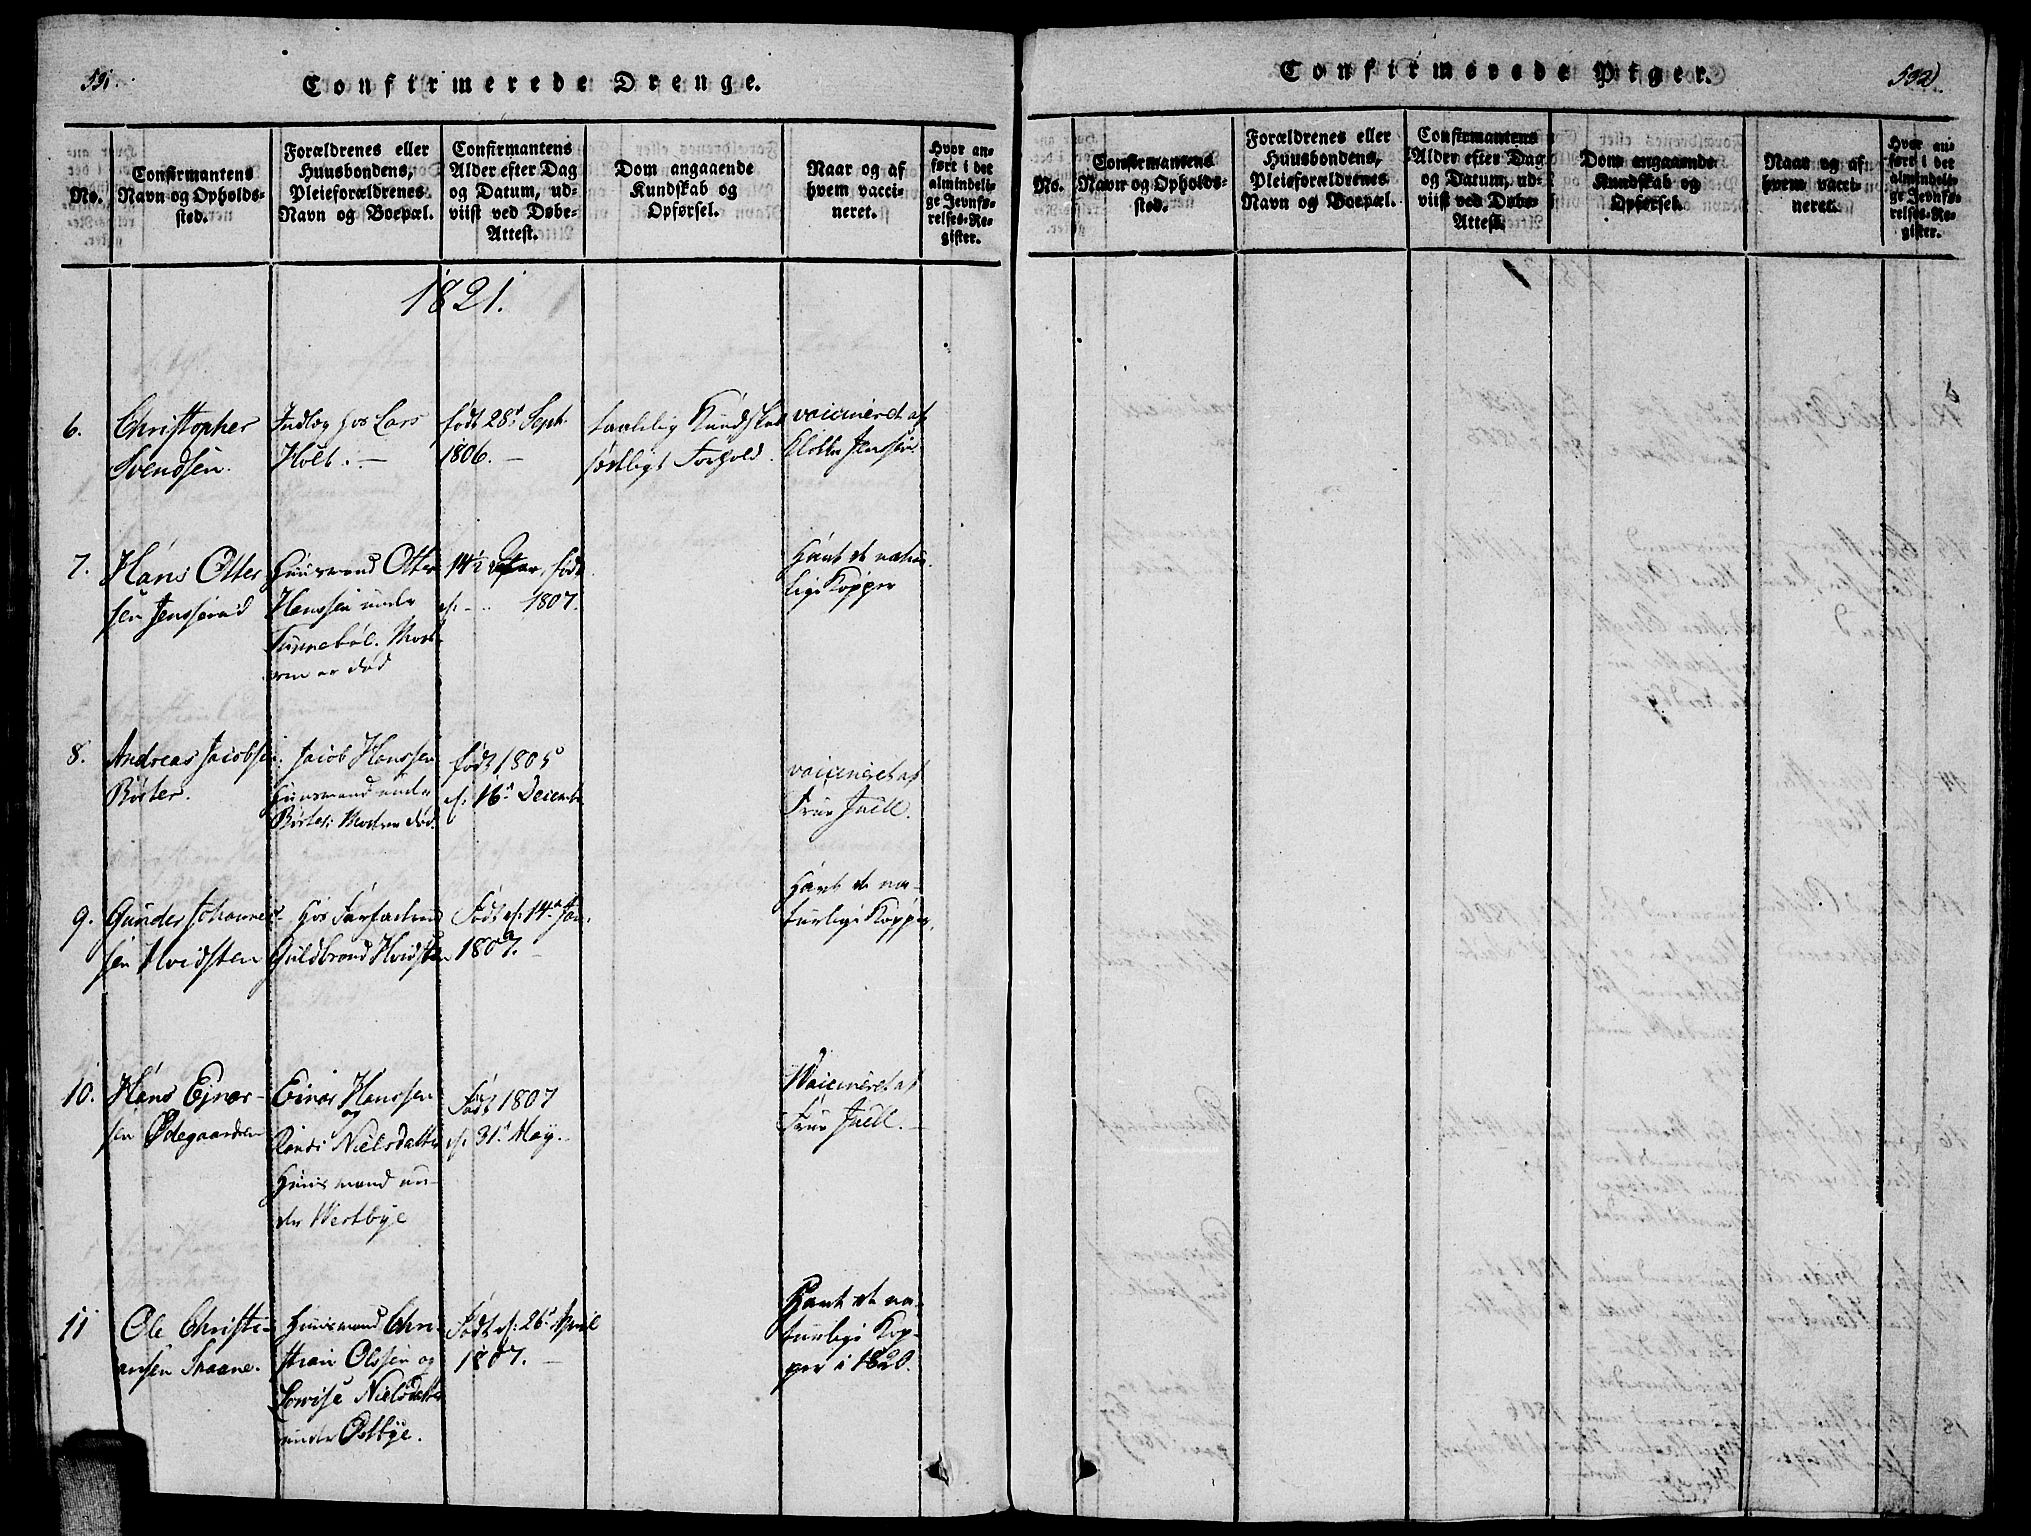 531.
Confirmerede Drenge.
No.
Confirmantens
Navn og Opholds-
sted.
Forældrenes eller
Huusbondens,
Pleieforældrenes
Navn og Boepæl.
Confirmantens
Alder efter Dag
og Datum, ud-
viist ved Døbe-
Attest.
Dom angaaende
Kundskab og
Opførsel.
Naar og af
hvem vacci-
neret.
Hvor an-
ført i det
almindeli-
ge Jevnfø-
relses-Re-
gister.
1821.
6.
Christopher
Svendsen.
Indlæg hos Lars
Holt.
født 28d Sept.
1806.
taalelig Kundskab
sædeligt Forhold.
vaccineret af
Jenssen
7.
Hans Otter
sen Jensserud
Huusmand Otter
Hanssen under
Tunnebøl. Mod-
eren er død
14½ Aar, født
d. 1807.
Havt de natur
lige Kopper
8.
Andreas Jacobsen
Børter.
Jacob Hanssen
Huusmand under
Børter. Moderen død.
født 1805
d. 16d Decemb.
vaccineret af
Frue Juell.
9.
Gunder Johannes-
sen Hvidsten
hos Farfaderen
Guldbrand Hvidsten
Født d. 14d Jan.
1807.
Havt de na-
turlige Kopper.
10.
Hans Ejner-
sen Ødegaarden
Einer Hanssen
og
Randi Nielsdatter
Huusmand un-
der Westbye
Født 1807
d. 31d May.
Vaccineret af
Frue Juell.
11
Ole Christi-
ansen Skaane.
Huusmand Chri-
stian Olssen og
Lowise Nielsdatter
under Østbye.
Født d. 26d April
1807.
Havt de na-
turlige Kop-
per i 1820.
Confirmerede Piger.
532.
No.
Confirmantens
Navn og Opholds-
sted.
Forældrenes eller
Huusbondens,
Pleieforældrenes
Navn og Boepæl.
Confirmantens
Alder efter Dag
og Datum, ud-
viist ved Døbe-
Attest.
Dom angaaende
Kundskab og
Opførsel.
Naar og af
hvem vacci-
neret.
Hvor an-
ført i det
almindeli-
ge Jevnfø-
relses-Re-
gister.